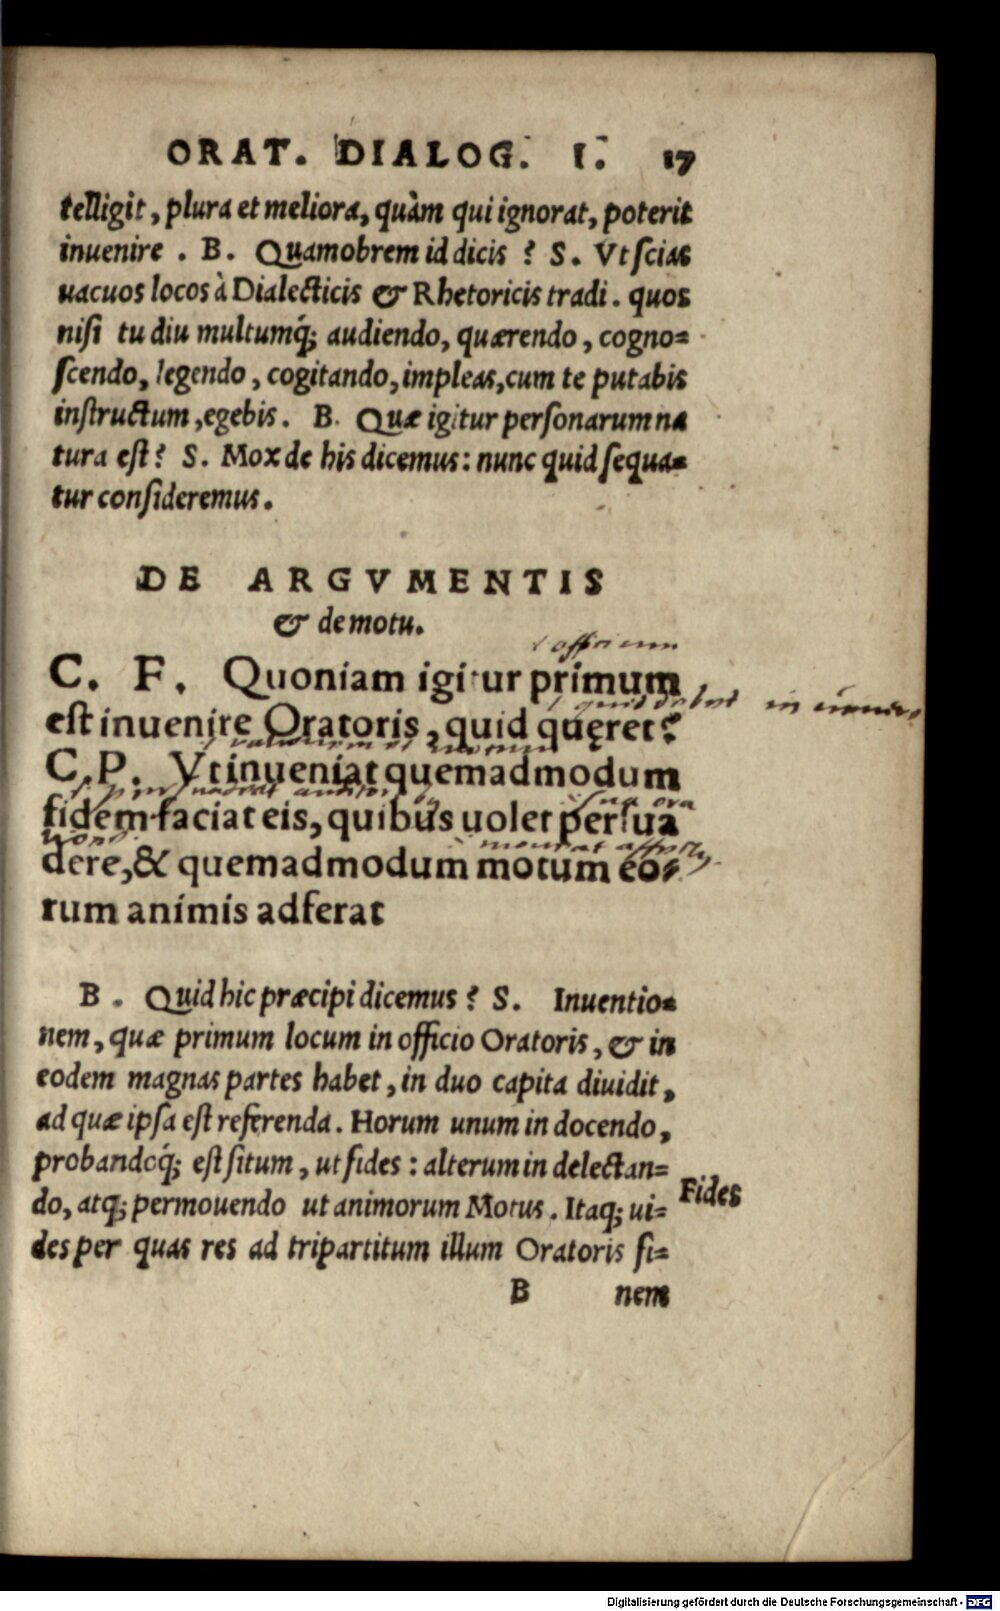 ORAT. DIALOG. I. 17
telligit, plura et meliora, quàm qui ignorat, poterit
inuenire. B. Quamobrem id dicis? S. Vt scias
uacuos locos à Dialecticis & Rhetoricis tradi. quos
nisi tu diu multumq́; audiendo, quærendo, cogno=
scendo, legendo, cogitando, impleas, cum te putabis
instructum, egebis. B. Quæ igitur personarum na
tura est? S. Mox de his dicemus: nunc quid sequa=
tur consideremus.
DE ARGVMENTIS
& de motu.
officium
C. F. Quoniam igitur primum
quid debet
est inuenire Oratoris, quid quęret?
rationem et motum
C. P. Vt inueniat quemadmodum
fidem faciat eis, quibus uolet persua
dere, & quemadmodum motum eo=
rum animis adferat
B. Quid hic præcipi dicemus? S. Inuentio=
nem, quæ primum locum in officio Oratoris, & in
eodem magnas partes habet, in duo capita diuidit,
ad quæ ipsa est referenda. Horum unum in docendo,
probandoq́; est situm, ut fides: alterum in delectan=
do, atq; permouendo ut animorum Motus. Itaq; ui=
Fides
des per quas res ad tripartitum illum Oratoris fi=
B nem
Digitalisierung gefördert durch die Deutsche Forschungsgemeinschaft - DFG